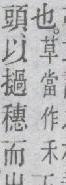 也。草當作禾
頭以撾穗而